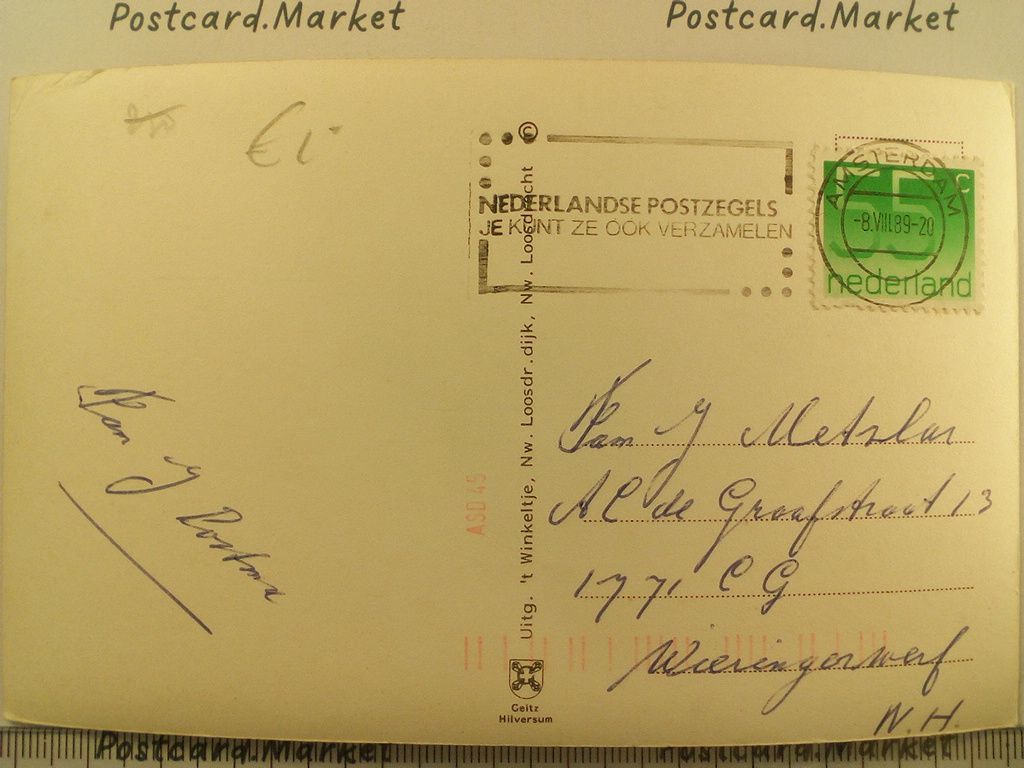 Postcard.Market Postcard.Market
€ 1
NEDERLANDSE POSTZEGELS
JE KUNT ZE OOK VERZAMELEN
AMSTERDAM
-8.VIII.89-20
55 c
nederland
Uitg. 't Winkeltje, Nw. Loosdr.dijk, Nw. Loosdrecht ©
Fam J Postma
ASD 45
Fam J Metzlar
A C de Graafstraat 13
1771 C G
Wieringerwerf
N.H.
Geitz
Hilversum
Postcard.Market Postcard.Market